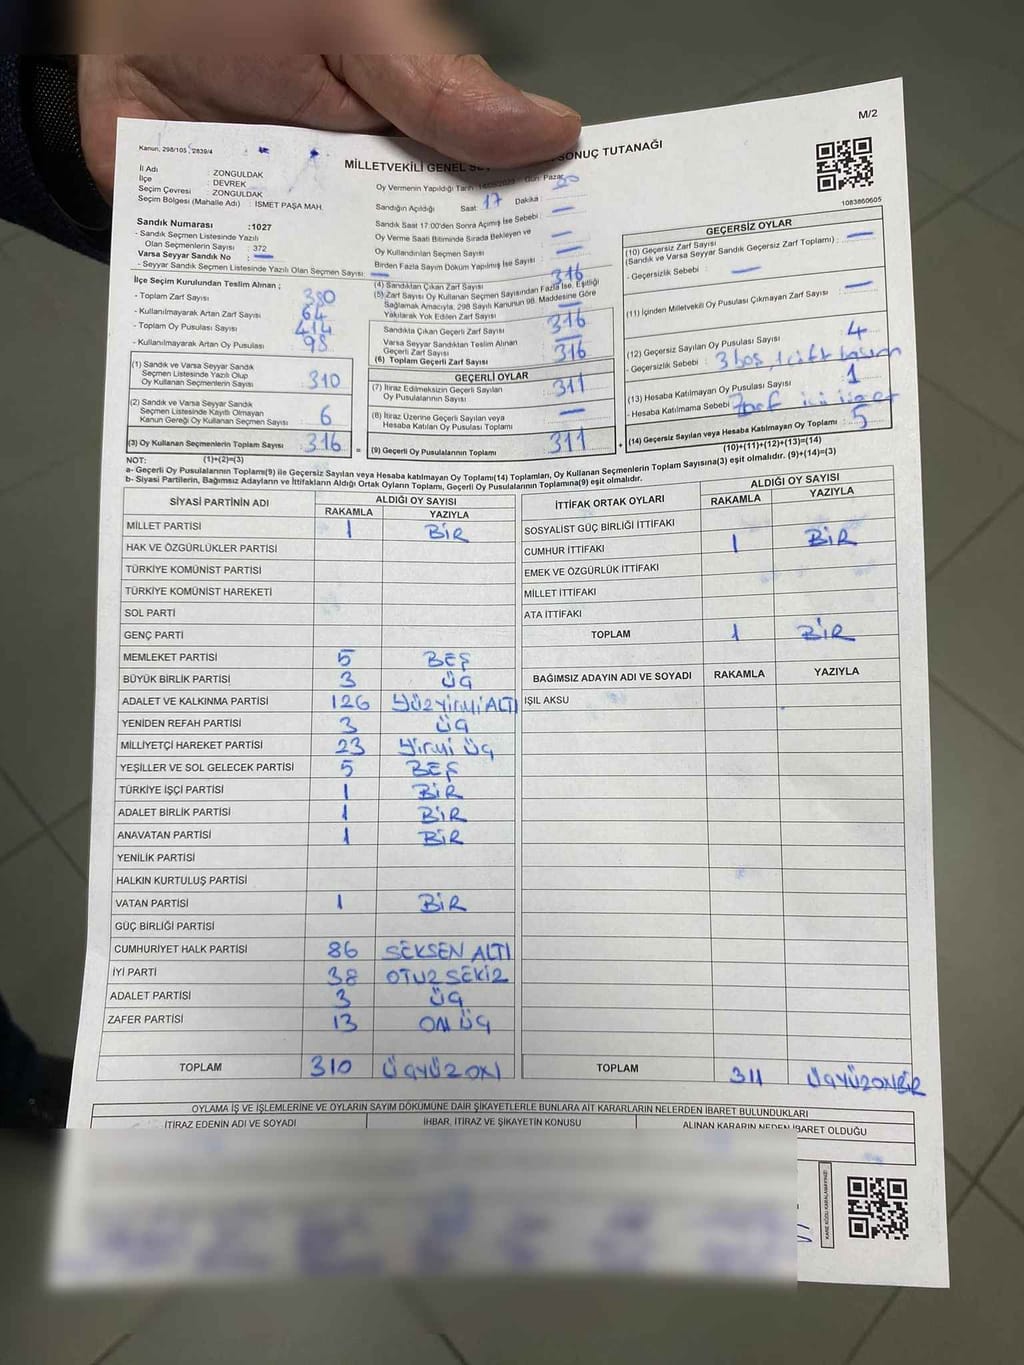 M/2
Kanun, 298/105, 2839/4
MİLLETVEKİLİ GENEL SONUÇ TUTANAĞI
İl Adı : ZONGULDAK
İlçe : DEVREK
Seçim Çevresi : ZONGULDAK
Seçim Bölgesi (Mahalle Adı) : İSMET PAŞA MAH.
Oy Vermenin Yapıldığı Tarih Gün: Pazar
Sandığın Açıldığı Saat : 17 Dakika :
Sandık Saat 17:00'den Sonra Açılmış İse Sebebi : —
Oy Verme Saati Bitiminde Sırada Bekleyen ve
Oy Kullandırılan Seçmen Sayısı : —
Birden Fazla Sayım Döküm Yapılmış İse Sayısı : —
1083860605
Sandık Numarası : 1027
- Sandık Seçmen Listesinde Yazılı
Olan Seçmenlerin Sayısı : 372
Varsa Seyyar Sandık No : —
- Seyyar Sandık Seçmen Listesinde Yazılı Olan Seçmen Sayısı : —
İlçe Seçim Kurulundan Teslim Alınan ;
- Toplam Zarf Sayısı : 380
- Kullanılmayarak Artan Zarf Sayısı : 64
- Toplam Oy Pusulası Sayısı : 414
- Kullanılmayarak Artan Oy Pusulası : 98
(1) Sandık ve Varsa Seyyar Sandık
Seçmen Listesinde Yazılı Olup
Oy Kullanan Seçmenlerin Sayısı : 310
(2) Sandık ve Varsa Seyyar Sandık
Seçmen Listesinde Kayıtlı Olmayan
Kanun Gereği Oy Kullanan Seçmen Sayısı : 6
(3) Oy Kullanan Seçmenlerin Toplam Sayısı : 316
(1)+(2)=(3)
(4) Sandıktan Çıkan Zarf Sayısı : 316
(5) Zarf Sayısı Oy Kullanan Seçmen Sayısından Fazla İse, Eşitliği
Sağlamak Amacıyla, 298 Sayılı Kanunun 98. Maddesine Göre
Yakılarak Yok Edilen Zarf Sayısı : —
Sandıkta Çıkan Geçerli Zarf Sayısı : 316
Varsa Seyyar Sandıktan Teslim Alınan
Geçerli Zarf Sayısı : —
(6) Toplam Geçerli Zarf Sayısı : 316
GEÇERLİ OYLAR
(7) İtiraz Edilmeksizin Geçerli Sayılan
Oy Pusulalarının Sayısı : 311
(8) İtiraz Üzerine Geçerli Sayılan veya
Hesaba Katılan Oy Pusulası Toplamı : —
(9) Geçerli Oy Pusulalarının Toplamı : 311
GEÇERSİZ OYLAR
(10) Geçersiz Zarf Sayısı
(Sandık ve Varsa Seyyar Sandık Geçersiz Zarf Toplamı) : —
- Geçersizlik Sebebi : —
(11) İçinden Milletvekili Oy Pusulası Çıkmayan Zarf Sayısı : —
(12) Geçersiz Sayılan Oy Pusulası Sayısı : 4
- Geçersizlik Sebebi : 3 boş, 1 çift basım
(13) Hesaba Katılmayan Oy Pusulası Sayısı : 1
- Hesaba Katılmama Sebebi :
(14) Geçersiz Sayılan veya Hesaba Katılmayan Oy Toplamı : 5
(10)+(11)+(12)+(13)=(14)
NOT:
a- Geçerli Oy Pusulalarının Toplamı(9) ile Geçersiz Sayılan veya Hesaba katılmayan Oy Toplamı(14) Toplamları, Oy Kullanan Seçmenlerin Toplam Sayısına(3) eşit olmalıdır. (9)+(14)=(3)
b- Siyasi Partilerin, Bağımsız Adayların ve İttifakların Aldığı Ortak Oyların Toplamı, Geçerli Oy Pusulalarının Toplamına(9) eşit olmalıdır.
SİYASİ PARTİNİN ADI ALDIĞI OY SAYISI
RAKAMLA YAZIYLA
MİLLET PARTİSİ 1 BİR
HAK VE ÖZGÜRLÜKLER PARTİSİ
TÜRKİYE KOMÜNİST PARTİSİ
TÜRKİYE KOMÜNİST HAREKETİ
SOL PARTİ
GENÇ PARTİ
MEMLEKET PARTİSİ 5 BEŞ
BÜYÜK BİRLİK PARTİSİ 3 ÜÇ
ADALET VE KALKINMA PARTİSİ 126 YÜZYİRMİ ALTI
YENİDEN REFAH PARTİSİ 3 ÜÇ
MİLLİYETÇİ HAREKET PARTİSİ 23 YİRMİ ÜÇ
YEŞİLLER VE SOL GELECEK PARTİSİ 5 BEŞ
TÜRKİYE İŞÇİ PARTİSİ 1 BİR
ADALET BİRLİK PARTİSİ 1 BİR
ANAVATAN PARTİSİ 1 BİR
YENİLİK PARTİSİ
HALKIN KURTULUŞ PARTİSİ
VATAN PARTİSİ 1 BİR
GÜÇ BİRLİĞİ PARTİSİ
CUMHURİYET HALK PARTİSİ 86 SEKSEN ALTI
İYİ PARTİ 38 OTUZ SEKİZ
ADALET PARTİSİ 3 ÜÇ
ZAFER PARTİSİ 13 ON ÜÇ
TOPLAM 310 ÜÇYÜZ ON
İTTİFAK ORTAK OYLARI ALDIĞI OY SAYISI
RAKAMLA YAZIYLA
SOSYALİST GÜÇ BİRLİĞİ İTTİFAKI
CUMHUR İTTİFAKI 1 BİR
EMEK VE ÖZGÜRLÜK İTTİFAKI
MİLLET İTTİFAKI
ATA İTTİFAKI
TOPLAM 1 BİR
BAĞIMSIZ ADAYIN ADI VE SOYADI RAKAMLA YAZIYLA
IŞIL AKSU
TOPLAM 311 ÜÇYÜZONBİR
OYLAMA İŞ VE İŞLEMLERİNE VE OYLARIN SAYIM DÖKÜMÜNE DAİR ŞİKAYETLERLE BUNLARA AİT KARARLARIN NELERDEN İBARET BULUNDUKLARI
İTİRAZ EDENİN ADI VE SOYADI İHBAR, İTİRAZ VE ŞİKAYETİN KONUSU ALINAN KARARIN NEDEN İBARET OLDUĞU
KARE KODU KARALAMAYINIZ!